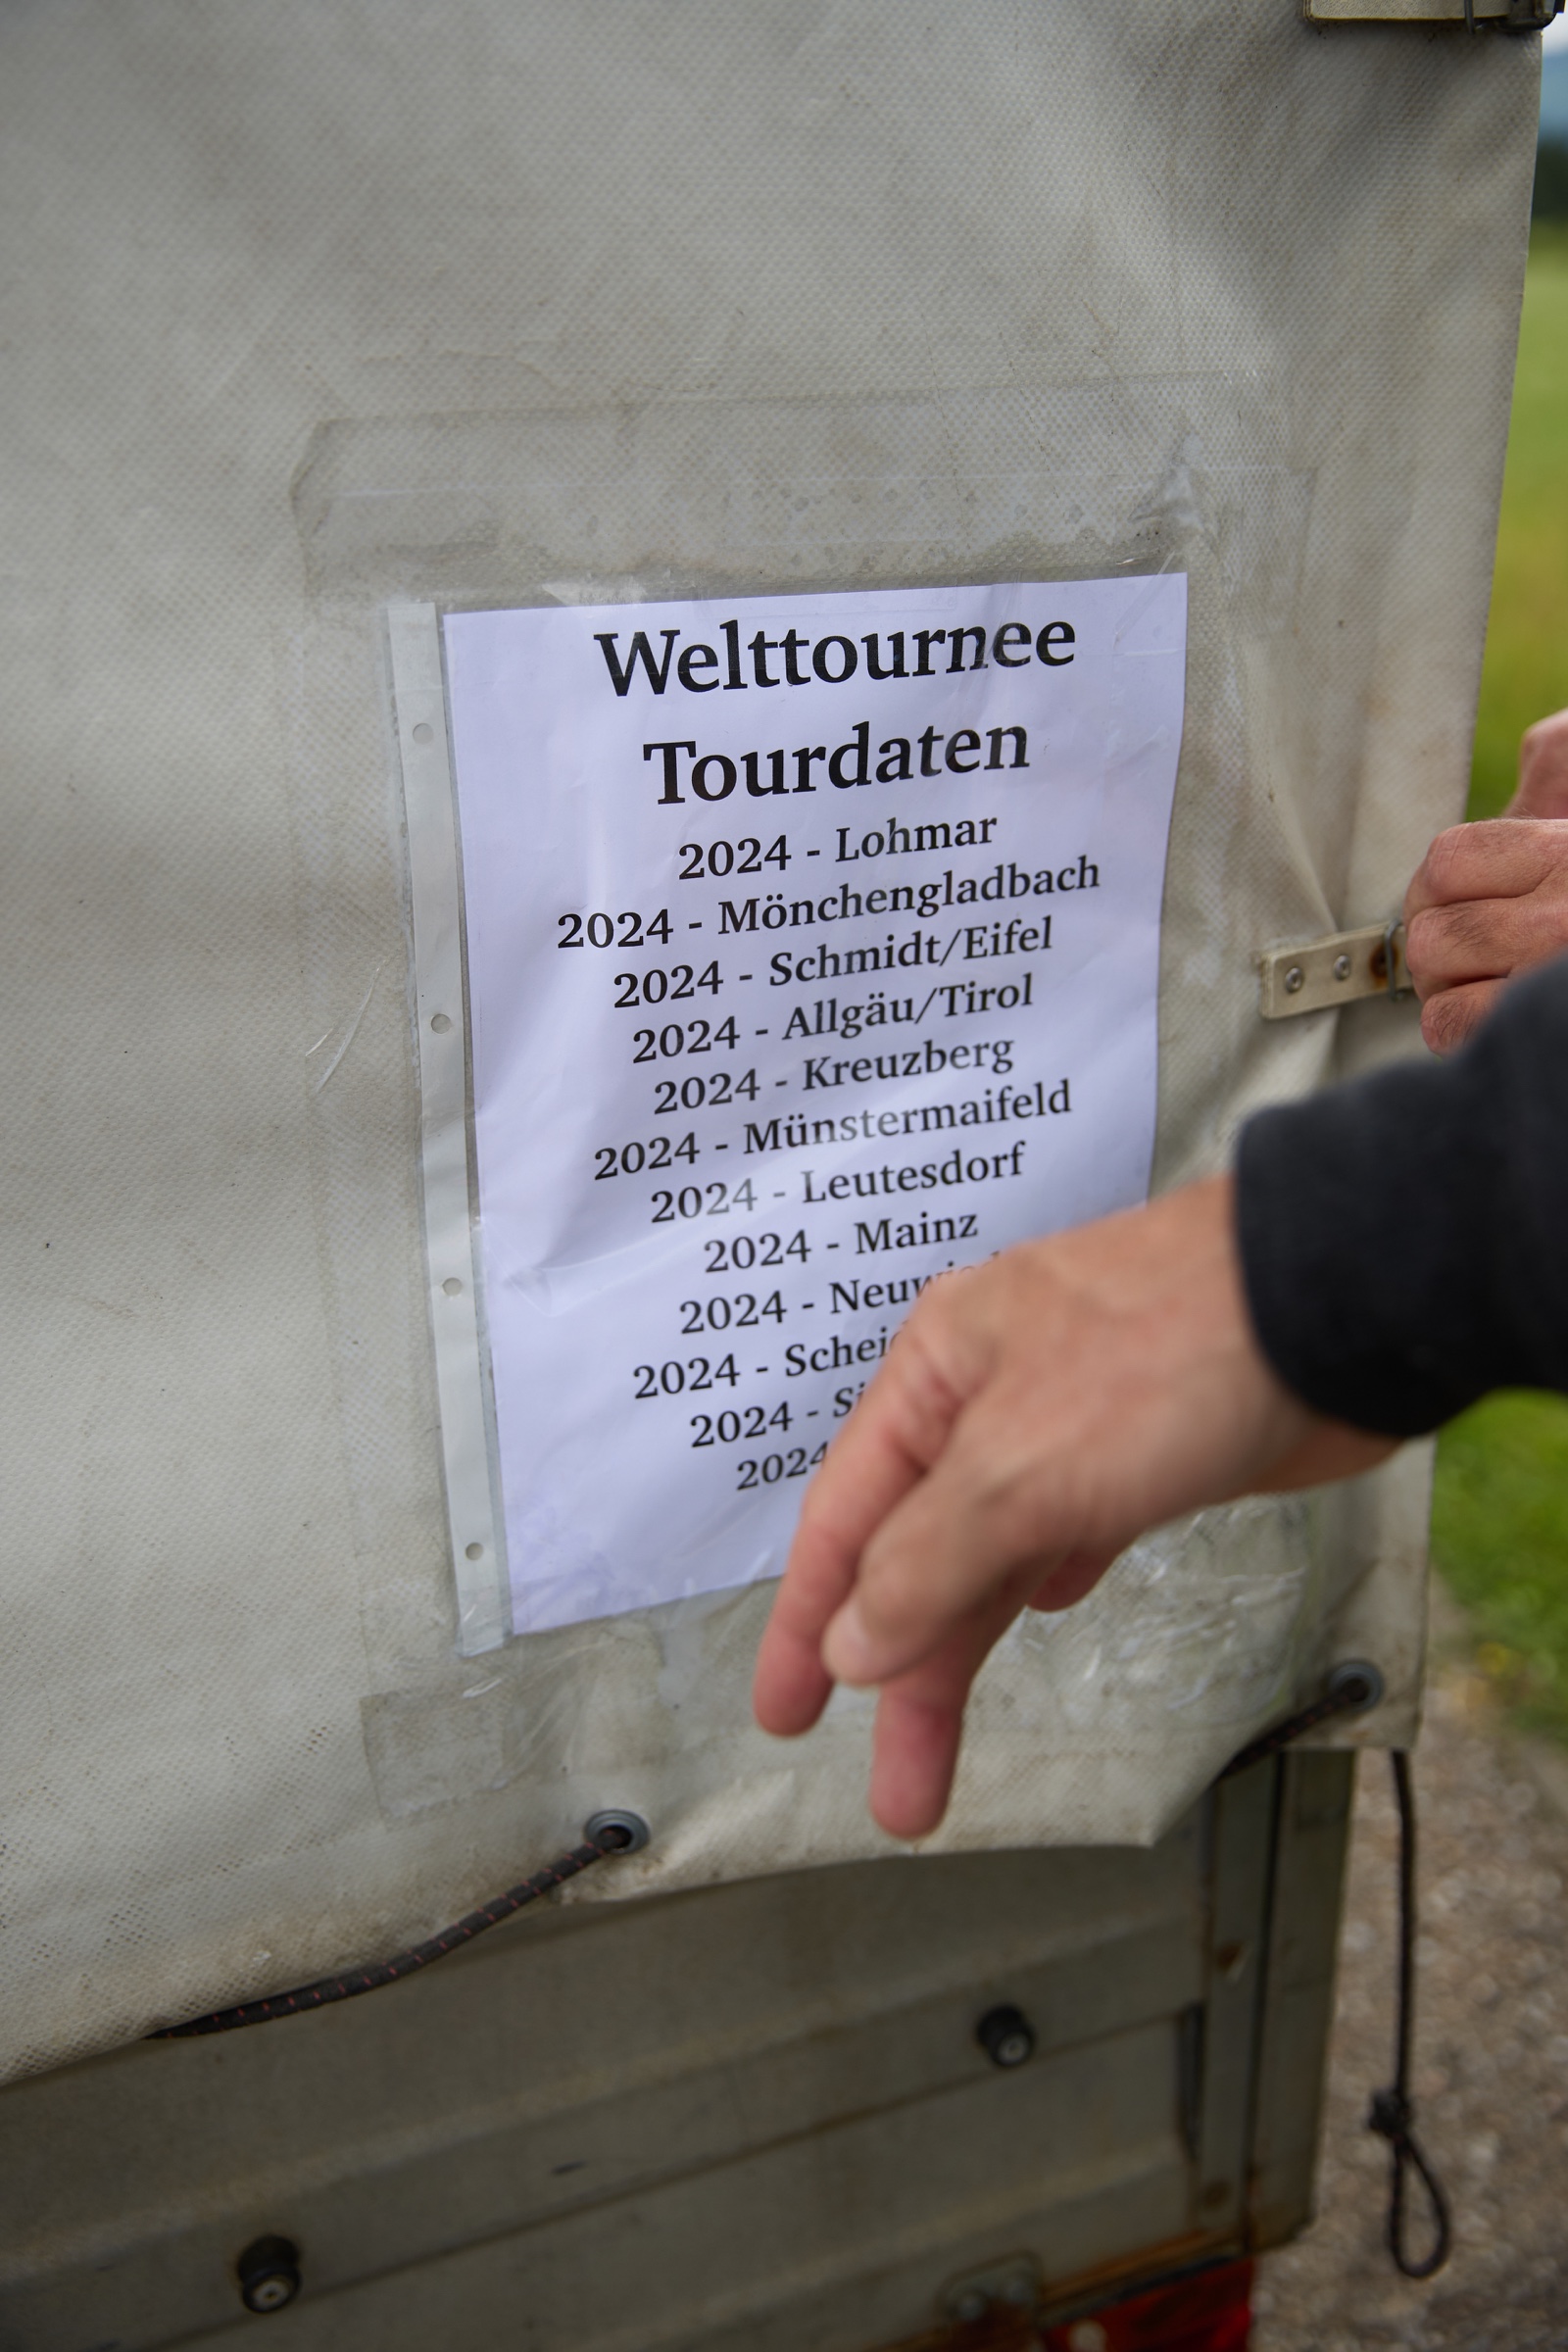 Welttournee
Tourdaten
2024 - Lohmar
2024 - Mönchengladbach
2024 - Schmidt/Eifel
2024 - Allgäu/Tirol
2024 - Kreuzberg
2024 - Münstermaifeld
2024 - Leutesdorf
2024 - Mainz
2024 - Neuwied
2024 -
2024 -
2024